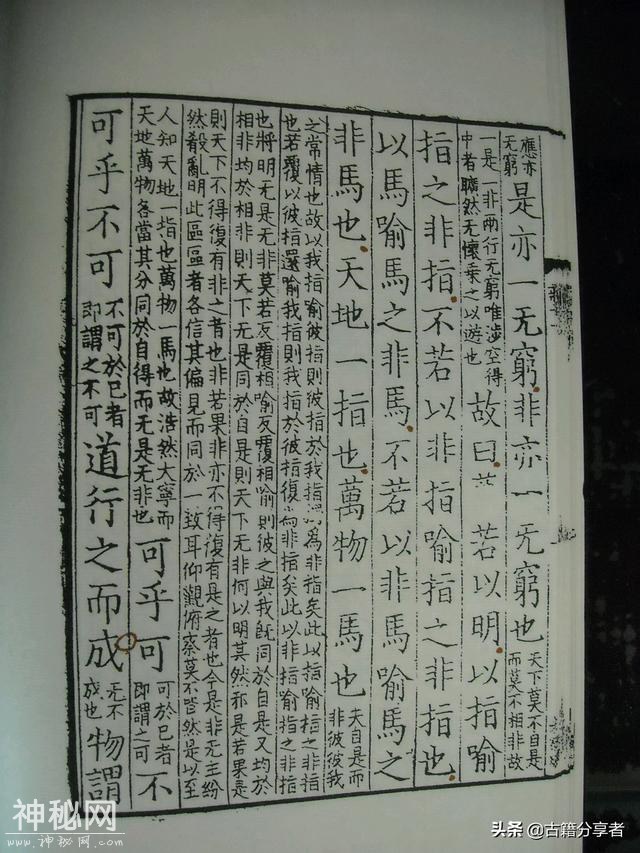 應亦无窮是亦一无窮非亦一无窮也天下莫不自是而莫不相非故
一是一非兩行无窮唯涉空得中者曠然无懷乘之以遊也故曰若以明以指喻
指之非指不若以非指喻指之非指也
以馬喻馬之非馬不若以非馬喻馬之
非馬也天地一指也萬物一馬也夫自是而非彼彼我
之常情也故以我指喻彼指則彼指於我指為非指矣此以指喻指之非指
也若覆以彼指還喻我指則我指於彼指復為非指矣此以非指喻指之非指
也將明无是无非莫若反覆相喻反覆相喻則彼之與我既同於自是又均於
相非均於相非則天下无是同於自是則天下无非何以明其然邪是若果是
則天下不得復有非之者也非若果非亦不得復有是之者也今是非无主紛
然殽亂明此區區者各信其偏見而同於一致耳仰觀俯察莫不皆然是以至
人知天地一指也萬物一馬也故浩然大寧而天地萬物各當其分同於自得而无是无非也可乎可可於已者即謂之可不
可乎不可不可於已者即謂之不可道行之而成无不成也物謂
神秘网
www.神秘网.com
头条 @古籍分享者